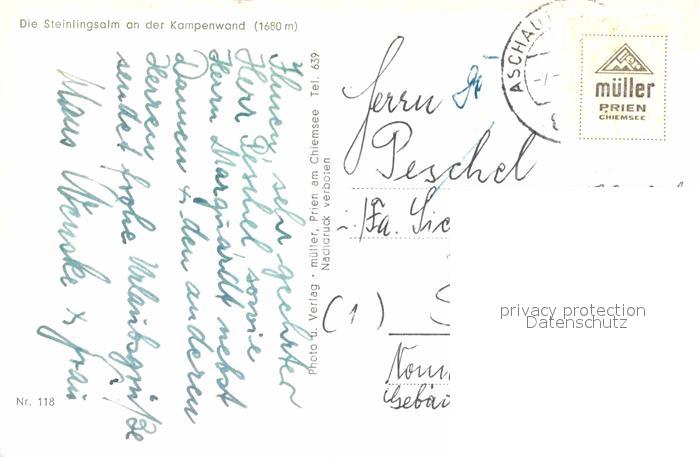 Die Steinlingsalm an der Kampenwand (1680 m)
Ihnen, sehr geehrter
Herr Peschel sowie
Herrn Marquardt nebst
Damen & den anderen
Herren
sendet frohe Urlaubsgrüße
& Frau
Nr. 118
Photo u. Verlag · müller, Prien am Chiemsee Tel. 639
Nachdruck verboten
ASCHAU
müller
PRIEN
CHIEMSEE
Herrn
Peschel
i/Fa.
(1)
privacy protection
Datenschutz